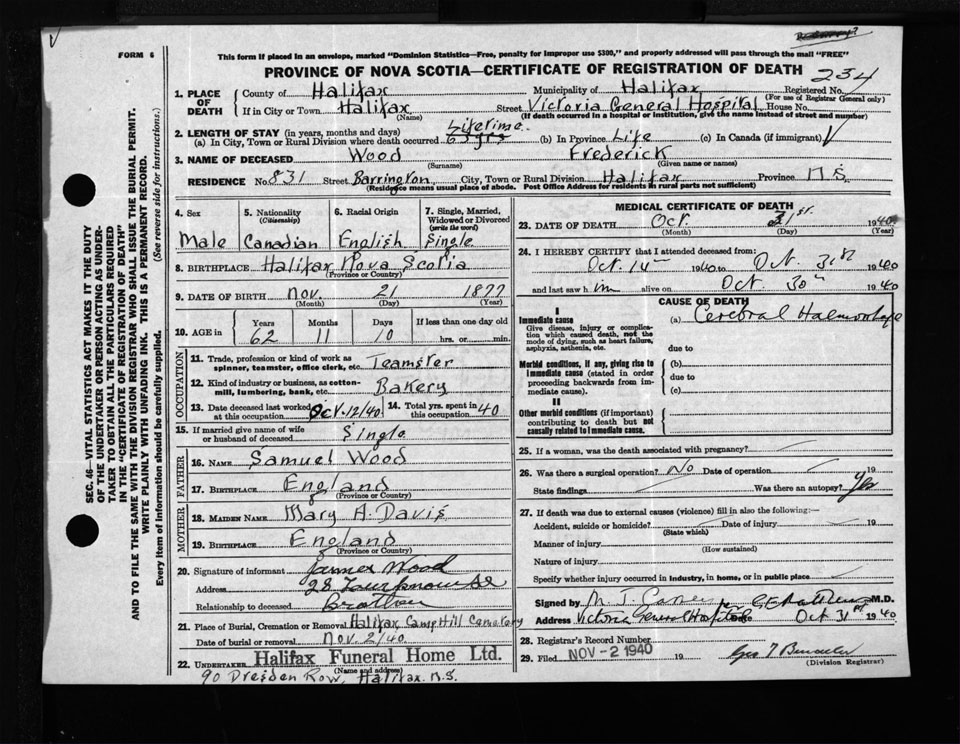 FORM 6
This form if placed in an envelope, marked "Dominion Statistics—Free, penalty for improper use $300," and properly addressed will pass through the mail "FREE"
PROVINCE OF NOVA SCOTIA—CERTIFICATE OF REGISTRATION OF DEATH 234
1. PLACE OF DEATH County of Halifax Municipality of Halifax Registered No.
(For use of Registrar General only)
If in City or Town Halifax Street Victoria General Hospital House No.
(Name) (If death occurred in a hospital or institution, give the name instead of street and number)
2. LENGTH OF STAY (in years, months and days)
(a) In City, Town or Rural Division where death occurred Lifetime 63 yrs (b) In Province Life (c) In Canada (if immigrant)
3. NAME OF DECEASED Wood Frederick
(Surname) (Given name or names)
RESIDENCE No. 831 Street Barrington City, Town or Rural Division Halifax Province N.S.
(Residence means usual place of abode. Post Office Address for residents in rural parts not sufficient)
4. Sex Male
5. Nationality (Citizenship) Canadian
6. Racial Origin English
7. Single, Married, Widowed or Divorced (write the word) Single
8. BIRTHPLACE Halifax Nova Scotia
(Province or Country)
9. DATE OF BIRTH Nov. 21 1877
(Month) (Day) (Year)
10. AGE in Years 62 Months 11 Days 10 If less than one day old hrs. or min.
OCCUPATION
11. Trade, profession or kind of work as spinner, teamster, office clerk, etc. Teamster
12. Kind of industry or business, as cotton-mill, lumbering, bank, etc. Bakery
13. Date deceased last worked at this occupation Oct. 12/40 14. Total yrs. spent in this occupation 40
15. If married give name of wife or husband of deceased Single
FATHER
16. NAME Samuel Wood
17. BIRTHPLACE England
(Province or Country)
MOTHER
18. MAIDEN NAME Mary A. Davis
19. BIRTHPLACE England
(Province or Country)
20. Signature of informant James Wood
Address 28
Relationship to deceased Brother
21. Place of Burial, Cremation or Removal Halifax Camp Hill Cemetery
Date of burial or removal Nov. 2/40
22. UNDERTAKER Halifax Funeral Home Ltd.
(Name and address)
90 Dresden Row, Halifax. N.S.
MEDICAL CERTIFICATE OF DEATH
23. DATE OF DEATH Oct 31st. 1940
(Month) (Day) (Year)
24. I HEREBY CERTIFY that I attended deceased from:
Oct. 14 1940 to Oct. 31st 1940
and last saw him alive on Oct. 30th 1940
CAUSE OF DEATH
I
Immediate cause
Give disease, injury or complication which caused death, not the mode of dying, such as heart failure, asphyxia, asthenia, etc.
(a) Cerebral
due to
Morbid conditions, if any, giving rise to immediate cause (stated in order proceeding backwards from immediate cause).
(b)
due to
(c)
II
Other morbid conditions (if important) contributing to death but not causally related to immediate cause.
25. If a woman, was the death associated with pregnancy?
26. Was there a surgical operation? No Date of operation 19
State findings Was there an autopsy? Yes
27. If death was due to external causes (violence) fill in also the following:—
Accident, suicide or homicide? Date of injury 19
(State which)
Manner of injury
(How sustained)
Nature of injury
Specify whether injury occurred in industry, in home, or in public place
Signed by M. J. M.D.
Address Victoria General Hospital Date Oct 31st 1940
28. Registrar's Record Number
29. Filed NOV - 2 1940 19
(Division Registrar)
SEC. 46—VITAL STATISTICS ACT MAKES IT THE DUTY
OF THE UNDERTAKER OR PERSON ACTING AS UNDER-
TAKER TO OBTAIN ALL THE PARTICULARS REQUIRED
IN THE "CERTIFICATE OF REGISTRATION OF DEATH"
AND TO FILE THE SAME WITH THE DIVISION REGISTRAR WHO SHALL ISSUE THE BURIAL PERMIT.
WRITE PLAINLY WITH UNFADING INK. THIS IS A PERMANENT RECORD.
Every item of information should be carefully supplied. (See reverse side for instructions.)